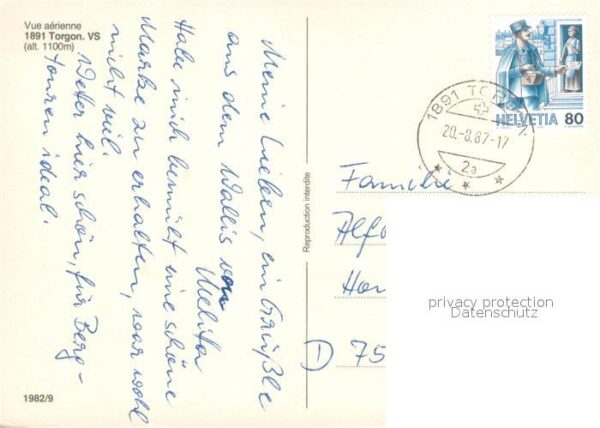 Vue aérienne
1891 Torgon. VS
(alt. 1100m)
Meine Lieben, ein Grüßle
aus dem Wallis von
Melita
Habe mich bemüht eine schöne
Marke zu erhalten, war wohl
nicht viel.
Wetter hier schön, für Berg-
touren ideal.
1982/9
Reproduction interdite
HELVETIA 80
1891 TORGON
20.-8.87-17
2a
Familie
Alfo
Hor
D 75
privacy protection
Datenschutz